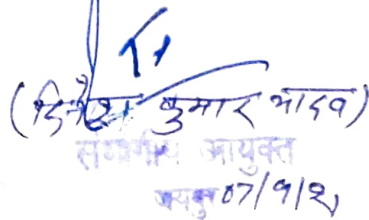 (दिनेश कुमार यादव)
संभागीय आयुक्त
जयपुर 07/9/21